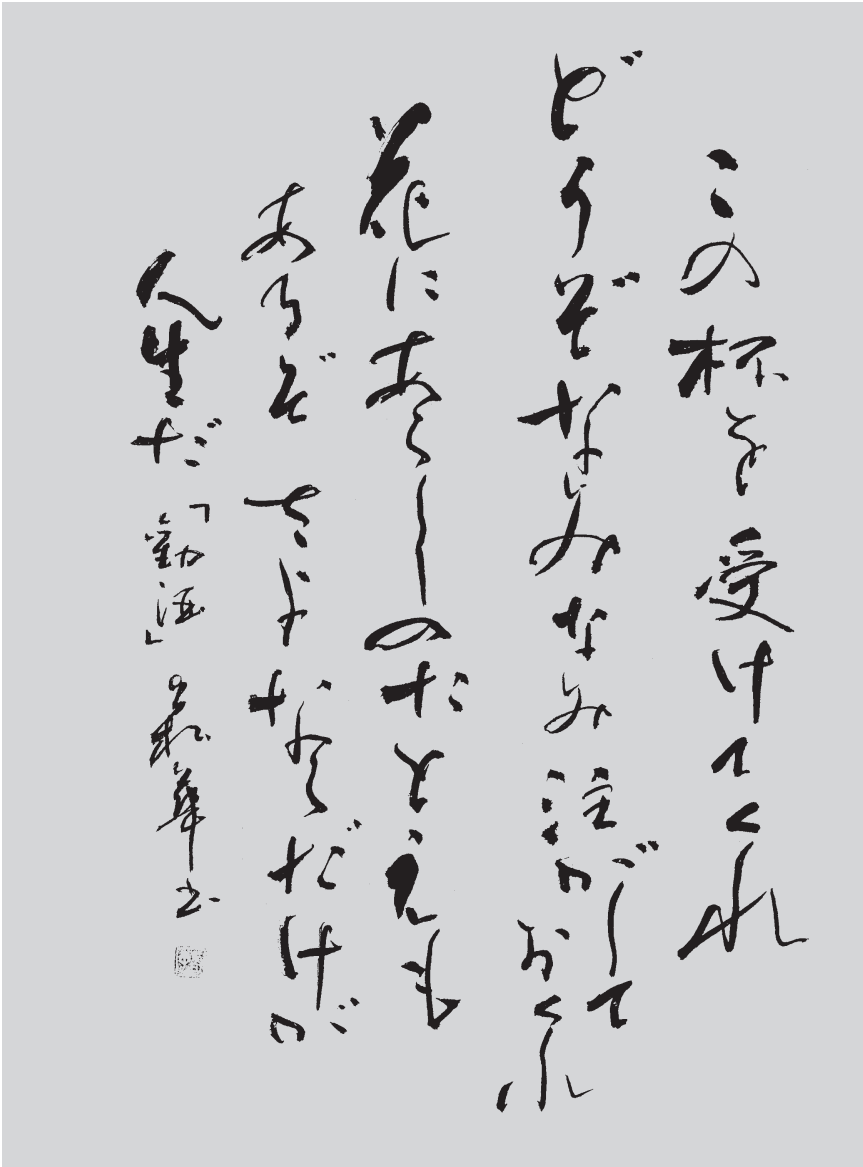 この杯を受けてくれ
どうぞなみなみ注がして
おくれ
花にあらしのたとえも
あるぞ さよならだけが
人生だ「勧酒」